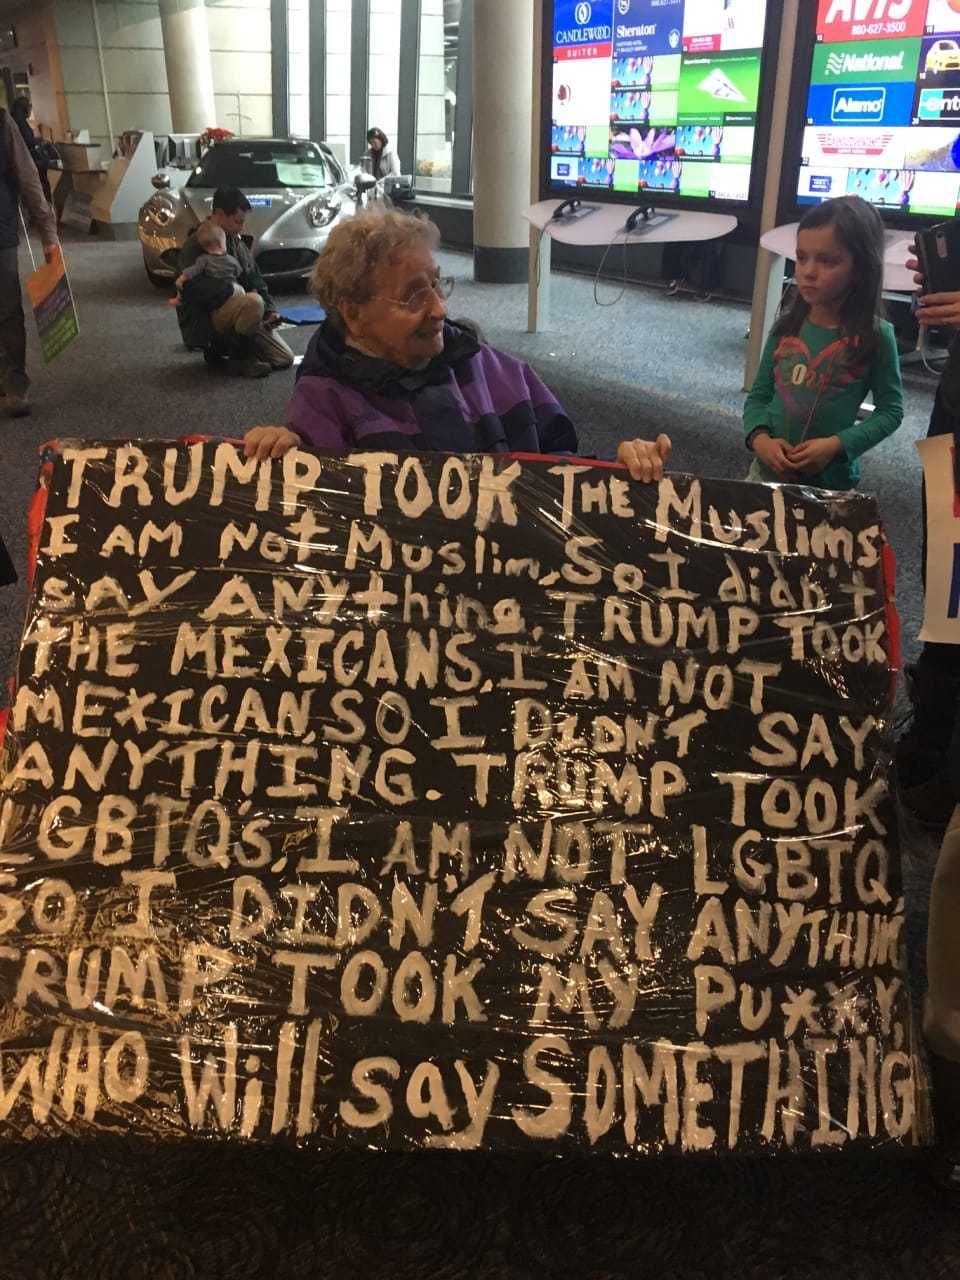 CANDLEWOOD
SUITES
Sheraton
AVIS
860-627-3500
National
Alamo
TRUMP TOOK THE Muslims
I AM NOt Muslim, So I didn't
SAY ANYthing. TRUMP TOOK
THE MEXICANS, I AM NOT
MEXICAN, SO I DIDN'T SAY
ANYTHING. TRUMP TOOK
LGBTQ'S, I AM NOT LGBTQ
SO I DIDN'T SAY ANYTHING
TRUMP TOOK MY PU**Y,
WHO Will say SOMETHING